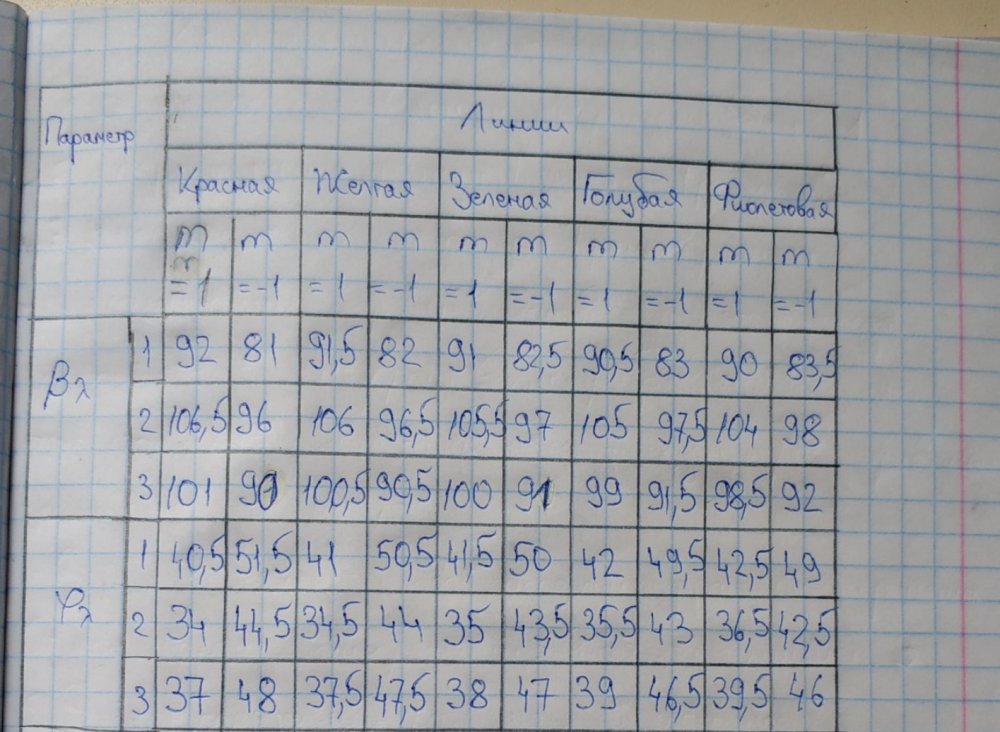 Параметр
Линии
Красная Желтая Зеленая Голубая Фиолетовая
m =1 m =-1 m =1 m =-1 m =1 m =-1 m =1 m =-1 m =1 m =-1
βλ
1 92 81 91,5 82 91 82,5 90,5 83 90 83,5
2 106,5 96 106 96,5 105,5 97 105 97,5 104 98
3 101 90 100,5 90,5 100 91 99 91,5 98,5 92
φλ
1 40,5 51,5 41 50,5 41,5 50 42 49,5 42,5 49
2 34 44,5 34,5 44 35 43,5 35,5 43 36,5 42,5
3 37 48 37,5 47,5 38 47 39 46,5 39,5 46